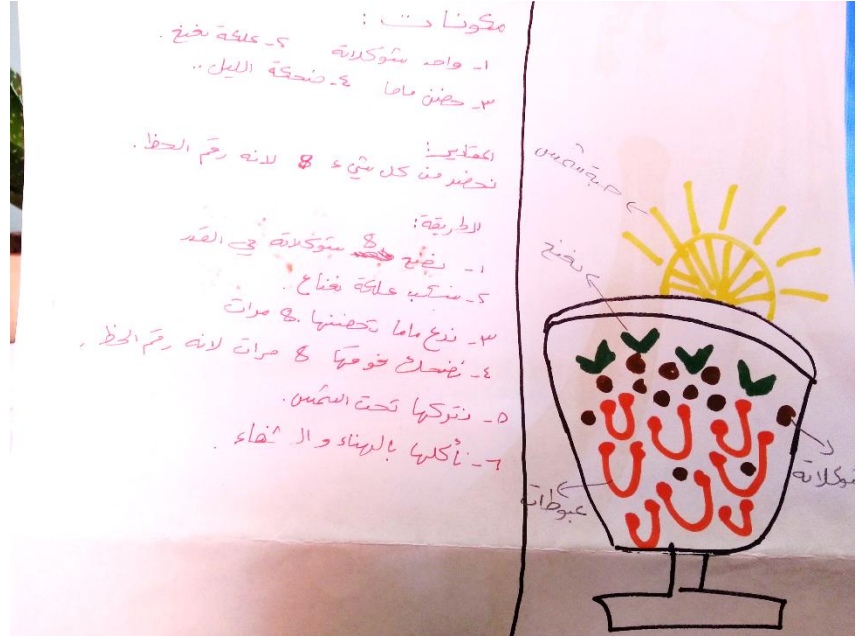 مكونات :
١- واحد شوكلاتة ٢- علكة نعنع .
٣- حضن ماما ٤- ضحكة الليل ..
المقادير:
نحضر من كل شيء 8 لانه رقم الحظ .
الطريقة:
١- نضع 8 شوكلاتة في القدر
٢- نسكب علكة نعناع .
٣- ندع ماما تحضننها 8 مرات
٤- نضحك فوقها 8 مرات لانه رقم الحظ .
٥- نتركها تحت الشمس .
٦- نأكلها بالهناء و الـ شفاء .
حبة شمس
نعنع
شوكلاتة
عبوطات